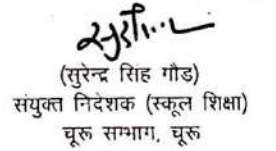 (सुरेन्द्र सिंह गौड)
संयुक्त निदेशक (स्कूल शिक्षा)
चूरू सम्भाग, चूरू